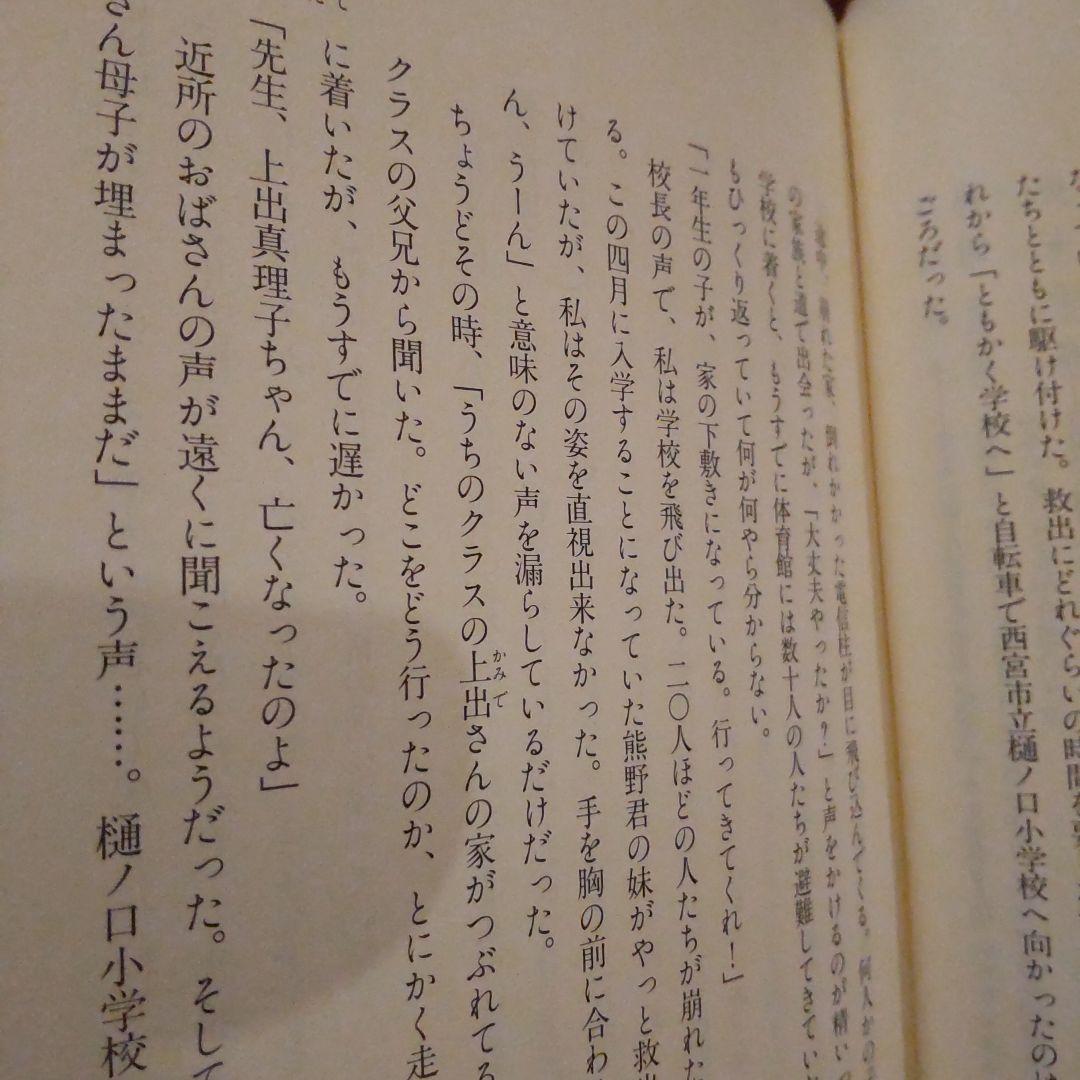 たちとともに駆け付けた。救出にどれぐらいの時間を
れから「ともかく学校へ」と自転車で西宮市立樋ノ口小学校へ向かったのは
ごろだった。
れた家、倒れかかった電信柱が目に飛び込んでくる。何人かの
の家族と道で出会ったが、「大丈夫やったか?」と声をかけるのが精い
学校に着くと、もうすでに体育館には数十人の人たちが避難してきてい
もひっくり返っていて何が何やら分からない。
「一年生の子が、家の下敷きになっている。行ってきてくれ!」
校長の声で、私は学校を飛び出た。二〇人ほどの人たちが崩れた
る。この四月に入学することになっていた熊野君の妹がやっと救出
けていたが、私はその姿を直視出来なかった。手を胸の前に合わ
ん、うーん」と意味のない声を漏らしているだけだった。
ちょうどその時、「うちのクラスの上出さんの家がつぶれてる
かみで
クラスの父兄から聞いた。どこをどう行ったのか、とにかく走
に着いたが、もうすでに遅かった。
「先生、上出真理子ちゃん、亡くなったのよ」
近所のおばさんの声が遠くに聞こえるようだった。そして
さん母子が埋まったままだ」という声……。樋ノ口小学校